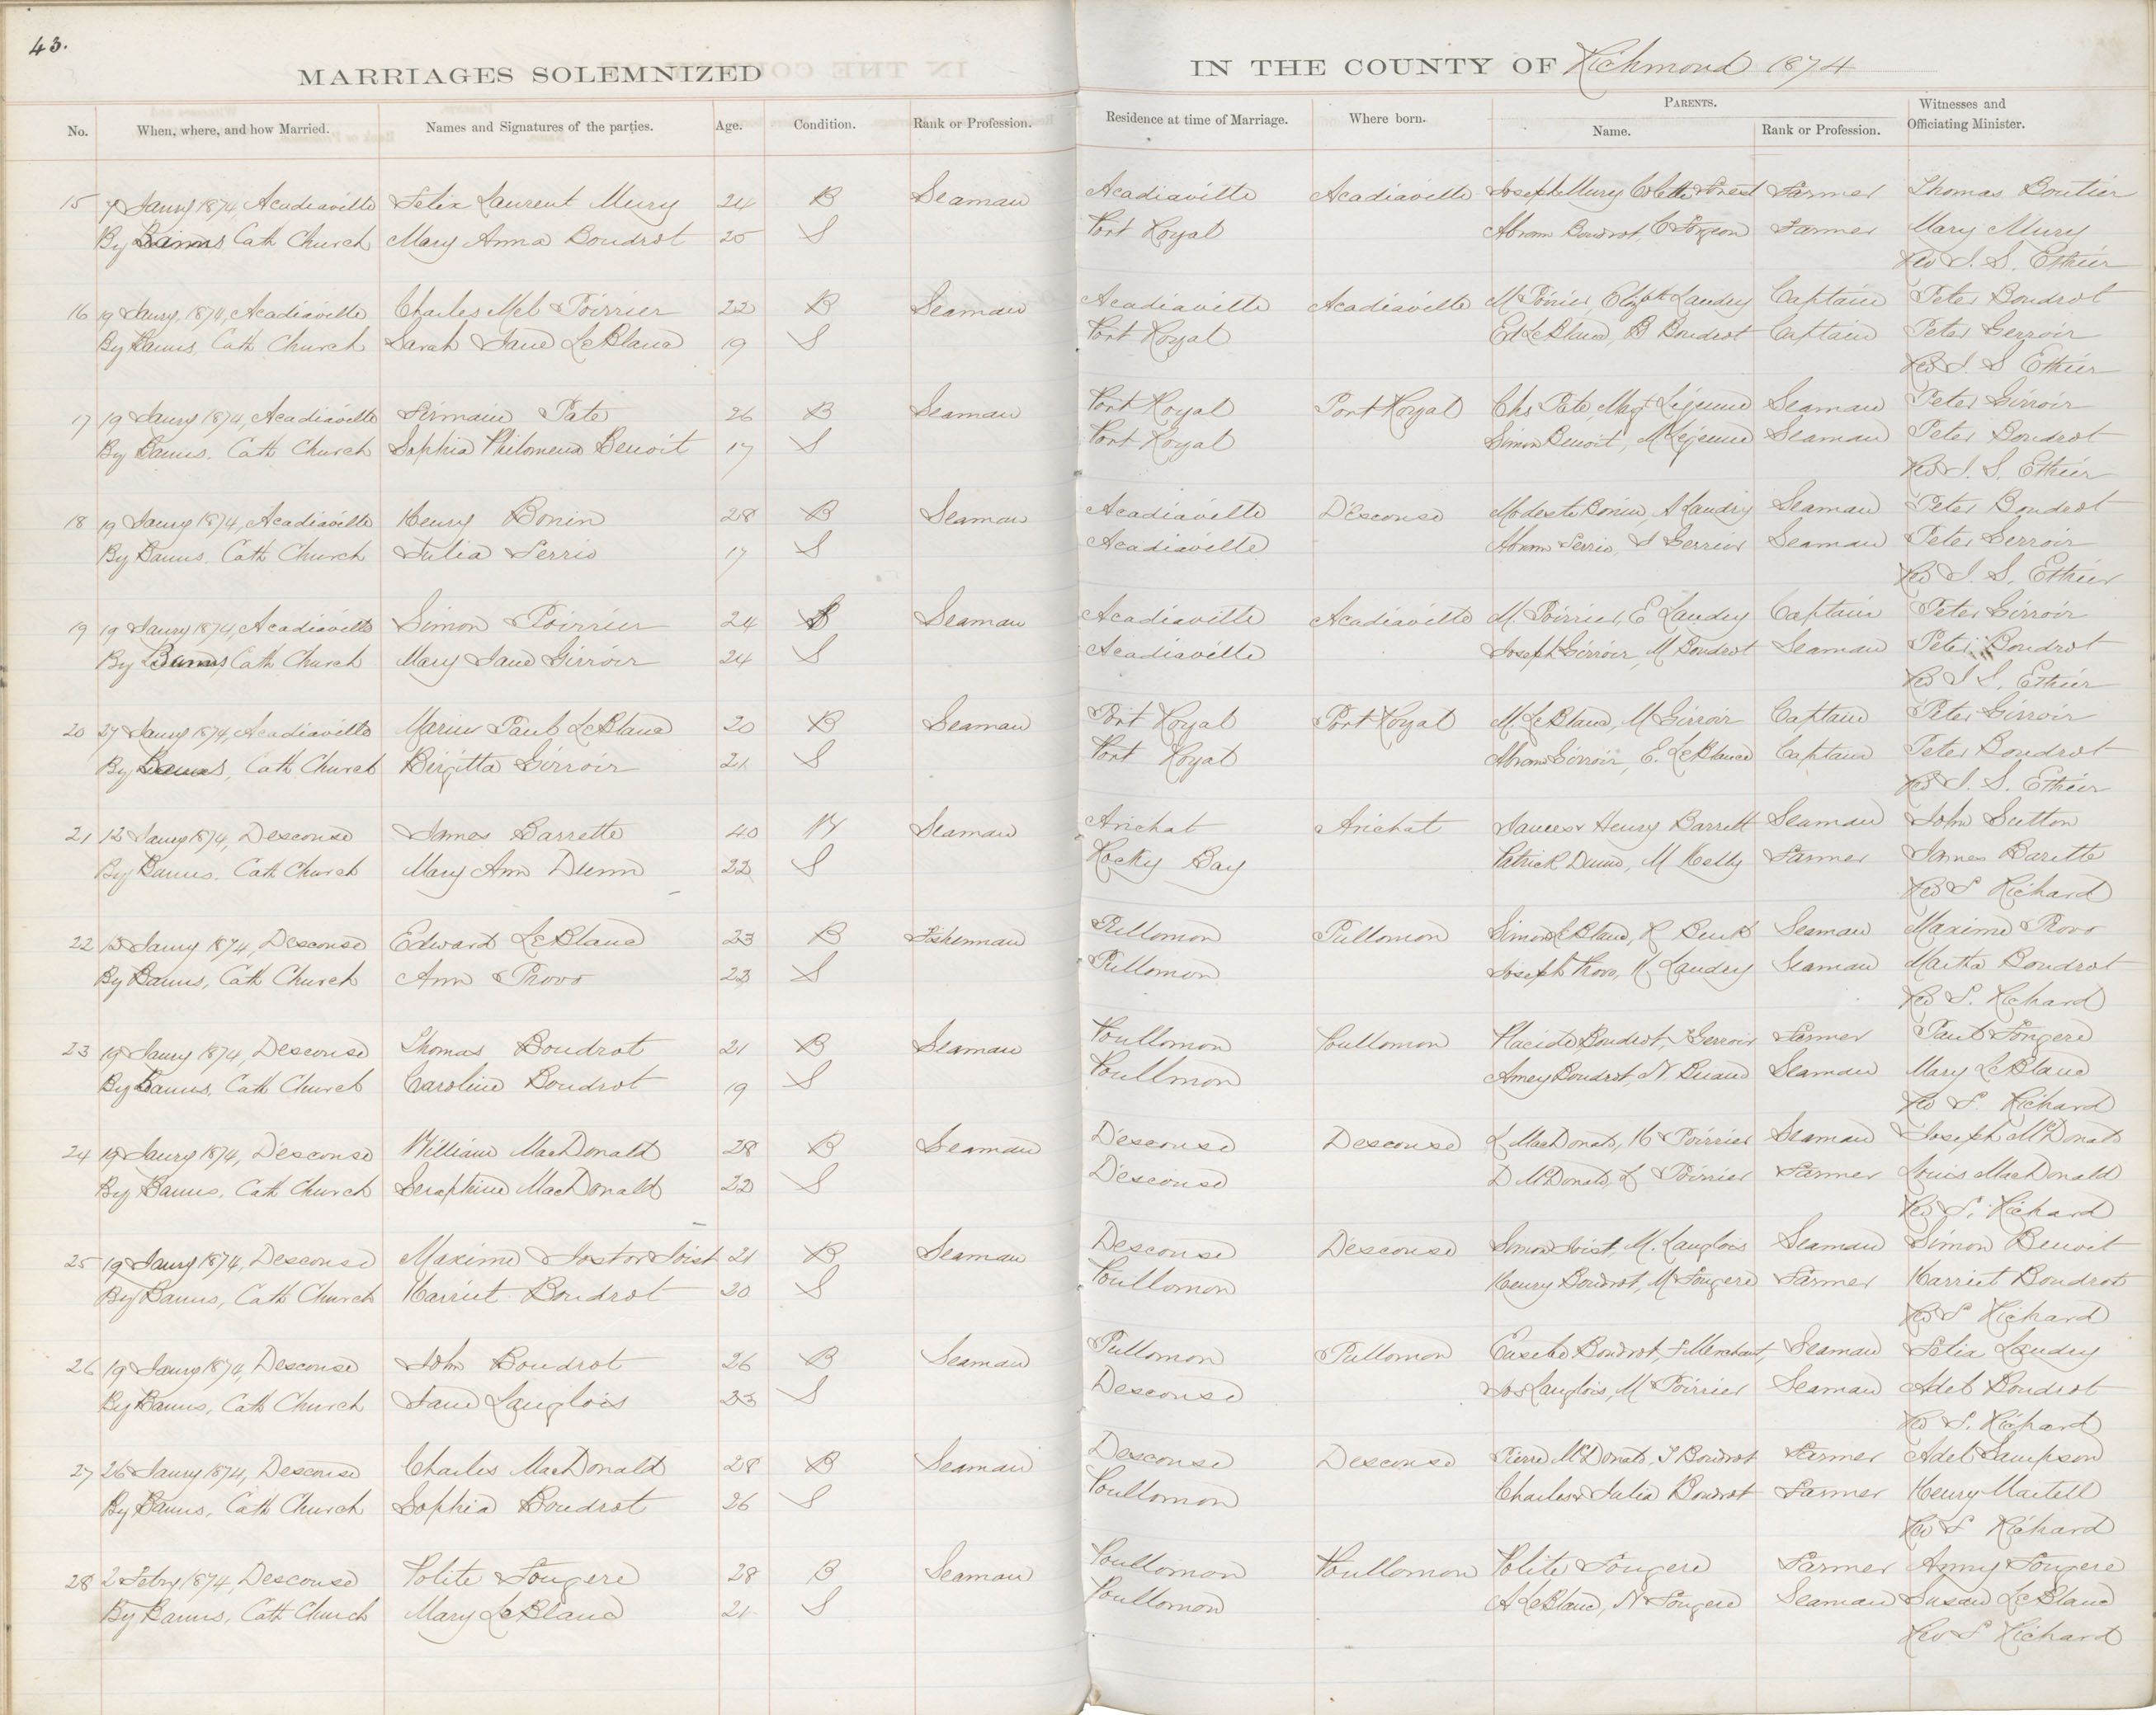 43.
MARRIAGES SOLEMNIZED IN THE COUNTY OF Richmond 1874
No. When, where, and how Married. Names and Signatures of the parties. Age. Condition. Rank or Profession. Residence at time of Marriage. Where born. PARENTS. Name. Rank or Profession. Witnesses and Officiating Minister.
15 7 Jany 1874, Acadiaville Felix Laurent Mury 24 B Seaman Acadiaville Acadiaville Joseph Mury Colette Forest Farmer Thomas Boutier
By Banns Cath Church Mary Anna Boudrot 25 S Port Royal Abram Boudrot, C Forgeon Farmer Mary Mury
Rev J. S. Ethier
16 19 Jany. 1874, Acadiaville Charles Mel Poirrier 22 B Seaman Acadiaville Acadiaville M Poirier, Elizth Landry Captain Peter Boudrot
By Banns, Cath Church Sarah Jane LeBlanc 19 S Port Royal Ed LeBlanc, B Boudrot Captain Peter Gerroir
Rev J. S Ethier
17 19 Jany 1874, Acadiaville Firmain Pate 26 B Seaman Port Royal Port Royal Chs Pate, Magt Lejeune Seaman Peter Girroir
By Banns. Cath Church Sophia Philomena Benoit 17 S Port Royal Simon Benoit, M Lejeune Seaman Peter Boudrot
Rev J. S. Ethier
18 19 Jany 1874, Acadiaville Henry Bonin 28 B Seaman Acadiaville D'Escouse Modeste Bonin, A Landry Seaman Peter Boudrot
By Banns. Cath Church Julia Ferrio 17 S Acadiaville Abram Ferrio, S Gerrior Seaman Peter Gerroir
Rev J. S. Ethier
19 19 Jany 1874, Acadiaville Simon Poirrier 24 B Seaman Acadiaville Acadiaville M. Poirrier, E Landry Captain Peter Girroir
By Banns, Cath Church Mary Jane Girroir 24 S Acadiaville Joseph Girroir, M Boudrot Seaman Peter Boudrot
Rev J S. Ethier
20 27 Jany 1874, Acadiaville Marin Paul LeBlanc 20 B Seaman Port Royal Port Royal M LeBlanc, M Girroir Captain Peter Girroir
By Banns, Cath Church Birgitta Girroir 21 S Port Royal Abram Girroir, E. LeBlanc Captain Peter Boudrot
Rev J. S. Ethier
21 12 Jany 1874, Descouse James Barrette 40 W Seaman Arichat Arichat James & Henry Barrett Seaman John Sutton
By Banns. Cath Church Mary Ann Dunn 22 S Rocky Bay Patrick Dunn, M Kelly Farmer James Barette
Rev S Richard
22 13 Jany 1874, Descouse Edward LeBlanc 23 B Fisherman Pullomon Pullomon Simon LeBlanc, R Seaman Maxime Provo
By Banns, Cath Church Ann Provo 23 S Pullomon Joseph Provo, H Landry Seaman Martha Boudrot
Rev S. Richard
23 19 Jany 1874, Descouse Thomas Boudrot 21 B Seaman Poullomon Poullomon Placide Boudrot, Gerroir Farmer Paul Fougere
By Banns, Cath Church Caroline Boudrot 19 S Poullmon Amey Boudrot, N Briand Seaman Mary LeBlanc
Rev S. Richard
24 19 Jany 1874, Descouse William MacDonald 28 B Seaman Descouse Descouse L MacDonald, H Poirrier Seaman Joseph McDonald
By Banns. Cath Church Seraphine MacDonald 22 S Descouse D McDonald, L Poirrier Farmer Louis MacDonald
Rev S. Richard
25 19 Jany 1874, Descouse Maxime Joist 21 B Seaman Descouse Descouse Simon Joist, M. Langlois Seaman Simon Benoit
By Banns, Cath Church Harriet Boudrot 20 S Poullomon Henry Boudrot, M Fougere Farmer Harriet Boudrot
Rev S Richard
26 19 Jany 1874, Descouse John Boudrot 26 B Seaman Pullomon Pullomon Eusebe Boudrot, F Merchant, Seaman Felix Landry
By Banns, Cath Church Jane Langlois 23 S Descouse Jos Langlois, M Poirrier Seaman Adel Boudrot
Rev S. Richard
27 26 Jany 1874, Descouse Charles MacDonald 28 B Seaman Descouse Descouse Pierre McDonald, J Boudrot Farmer Adel Sampson
By Banns, Cath Church Sophia Boudrot 26 S Poullomon Charles & Julia Boudrot Farmer Henry Martell
Rev S Richard
28 2 Febry 1874, Descouse Polite Fougere 28 B Seaman Poullomon Poullomon Polite Fougere Farmer Anny Fougere
By Banns, Cath Church Mary LeBlanc 21 S Poullomon A LeBlanc, N Fougere Seaman Susan LeBlanc
Rev S Richard